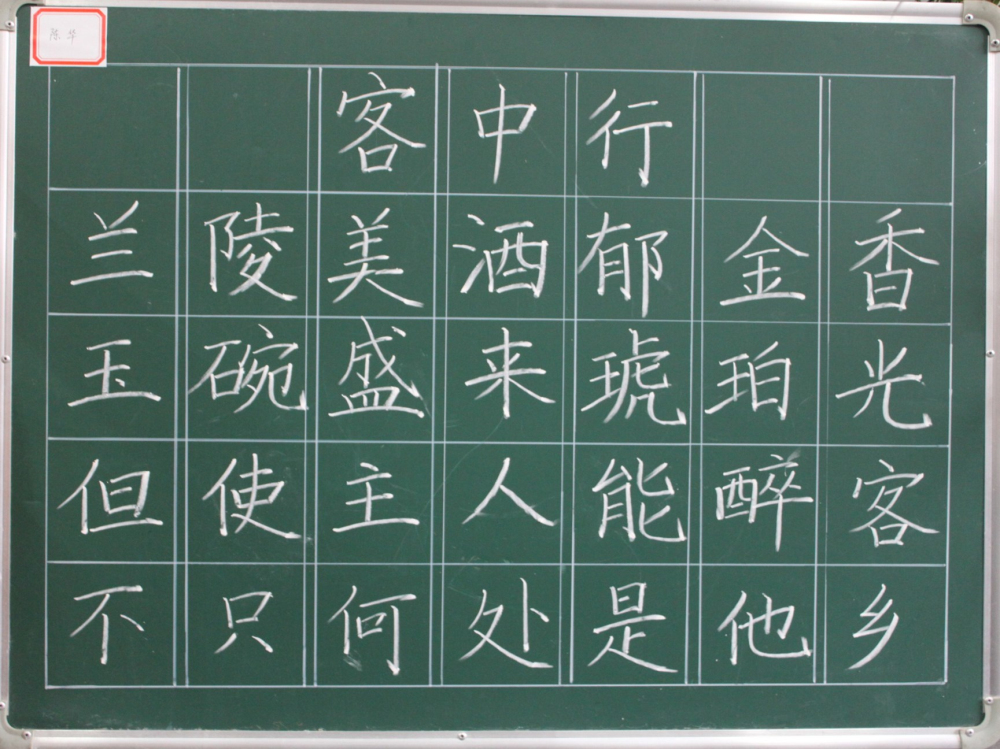 陈华
客中行
兰陵美酒郁金香
玉碗盛来琥珀光
但使主人能醉客
不只何处是他乡